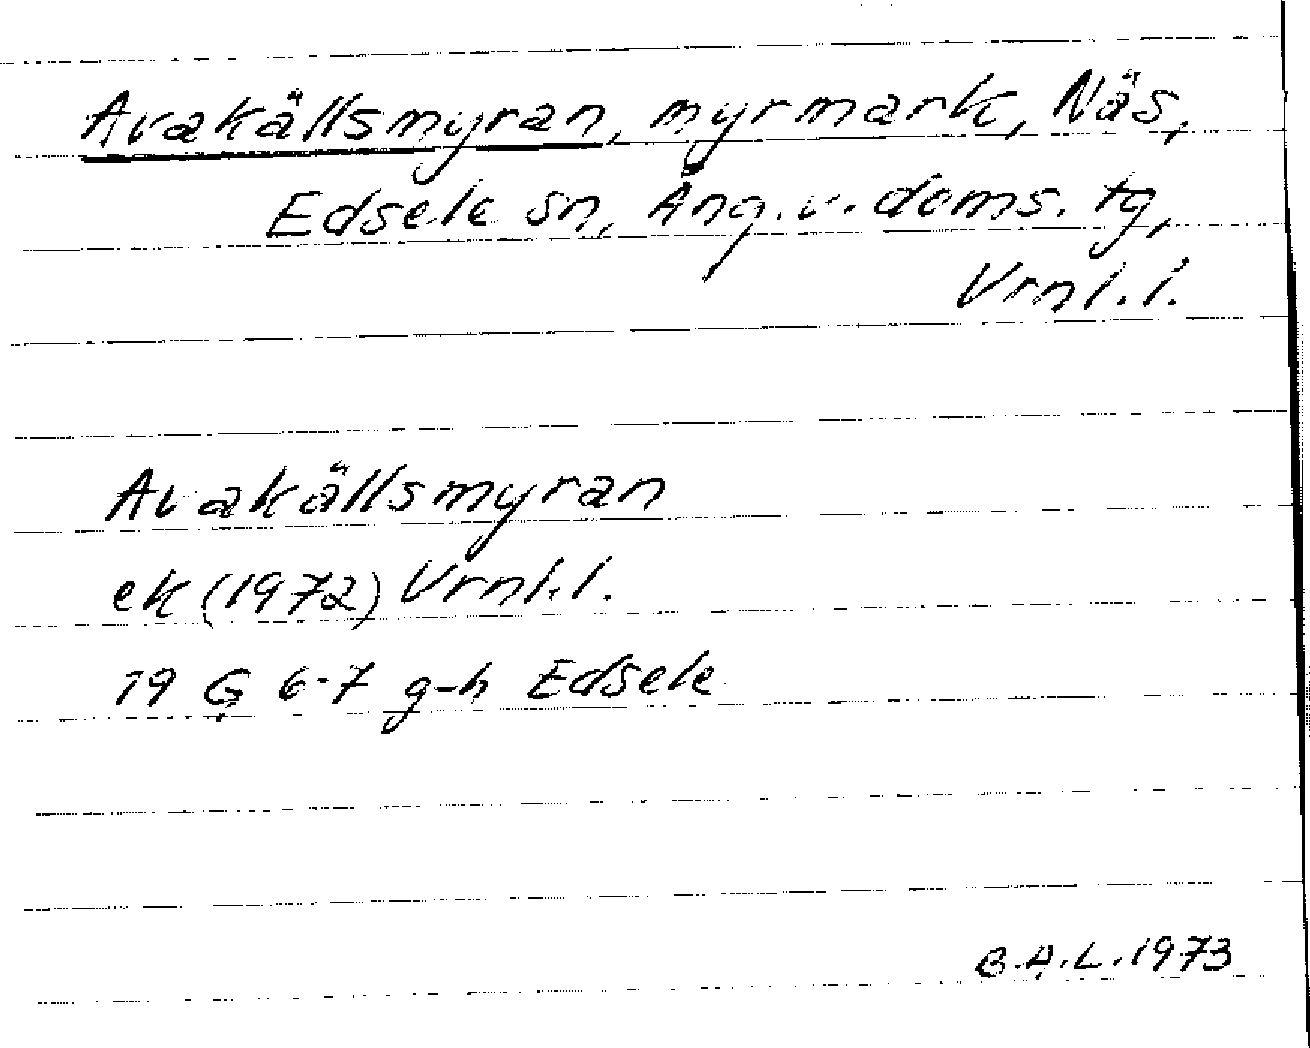 Avakällsmyran, myrmark, Näs,
Edsele sn, Ång. v. doms. tg,
Vrnl. l.
Avakällsmyran
ek (1972) Vrnl. l.
19 G 6-7 g-h Edsele
B.A.L. 1973